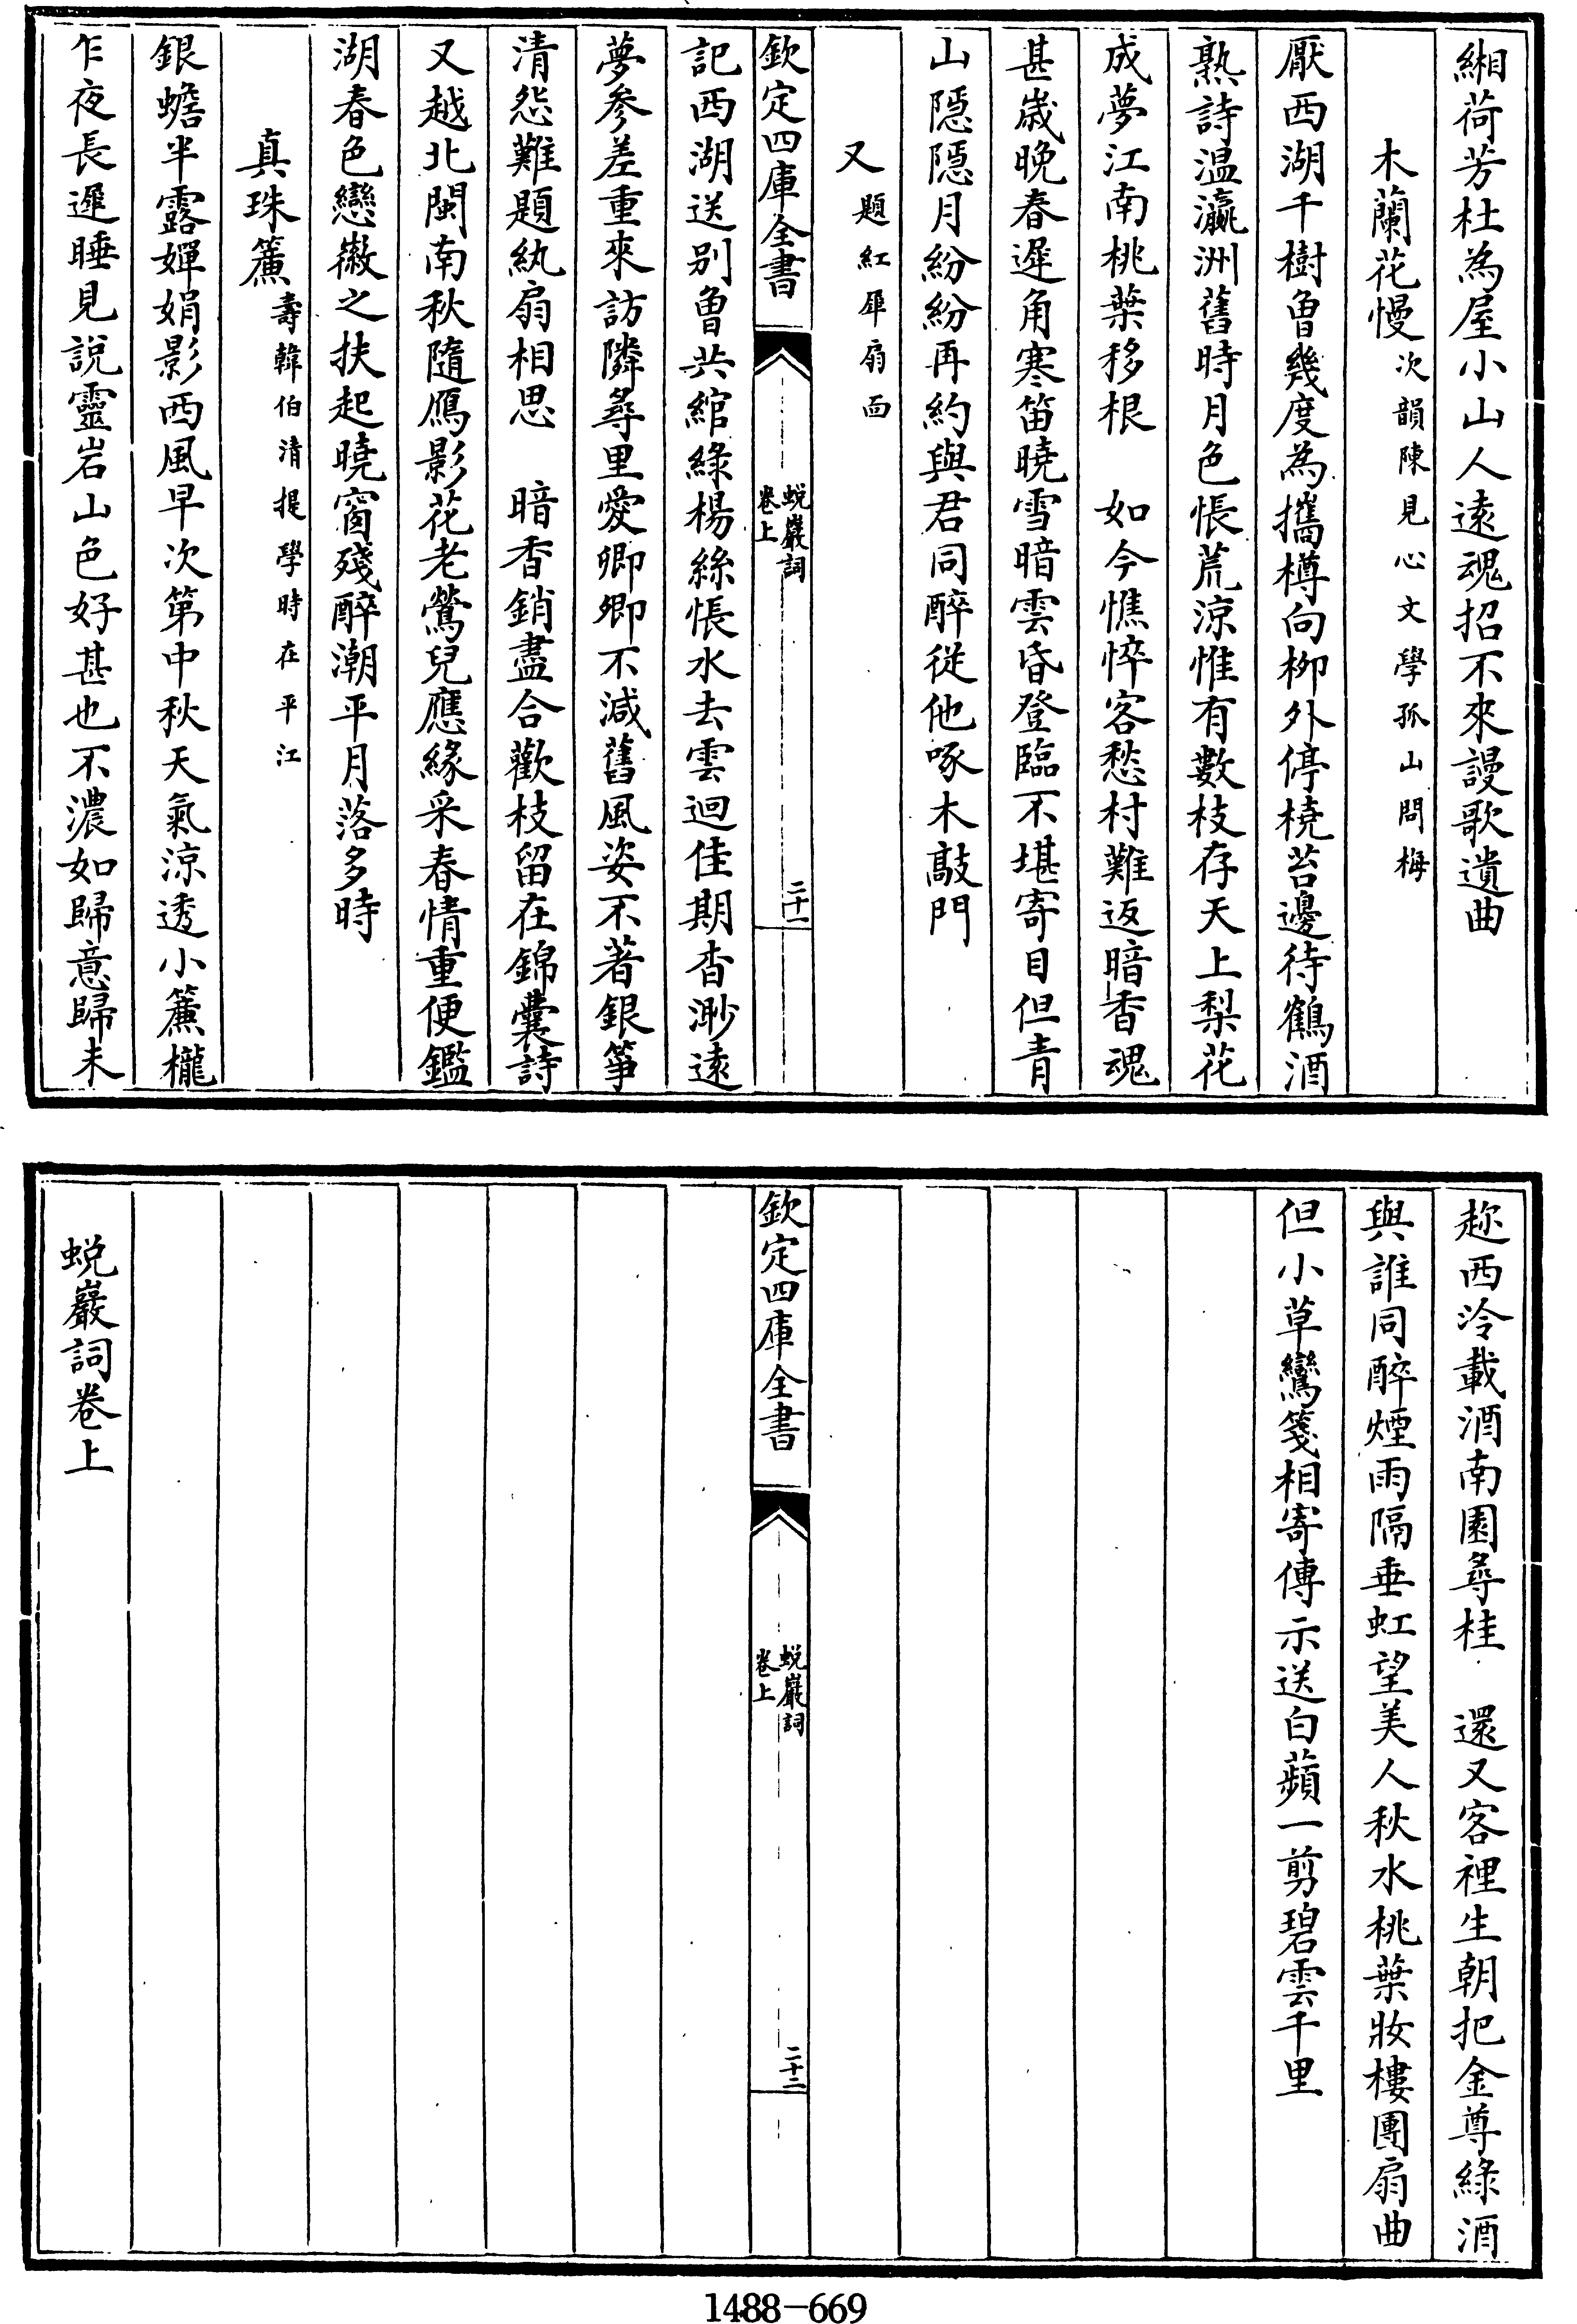 緗荷芳杜為屋小山人遠魂招不來謾歌遺曲
木蘭花慢次韻陳見心文學孤山問梅
厭西湖千樹曾幾度為攜樽向栁外停橈苔邊待鶴酒
熟詩温瀛洲舊時月色悵荒涼惟有數枝存天上梨花
成夢江南桃葉移根　如今憔悴客愁村難返暗香魂
甚歲晚春遲角寒笛曉雪暗雲昏登臨不堪寄目但青
山隱隱月紛紛再約與君同醉從他啄木敲門
又題紅犀扇面
欽定四庫全書
蛻巖詞
卷上
二十一
記西湖送别曾共綰綠楊絲悵水去雲迴佳期杳渺遠
夢參差重來訪隣尋里愛卿卿不減舊風姿不著銀箏
清怨難題紈扇相思　暗香銷盡合歡枝留在錦囊詩
又越北閩南秋隨鴈影花老鶯兒應緣采春情重便鑑
湖春色戀微之扶起曉窗殘醉潮平月落多時
真珠簾壽韓伯清提學時在平江
銀蟾半露嬋娟影西風早次第中秋天氣涼透小簾櫳
乍夜長遲睡見說靈岩山色好甚也不濃如歸意歸未
趂西泠載酒南園尋桂　還又客裡生朝把金尊綠酒
與誰同醉煙雨隔垂虹望美人秋水桃葉妝樓團扇曲
但小草鸞箋相寄傳示送白蘋一剪碧雲千里
欽定四庫全書
蛻巖詞
卷上
二十二
蛻巖詞卷上
1488-669